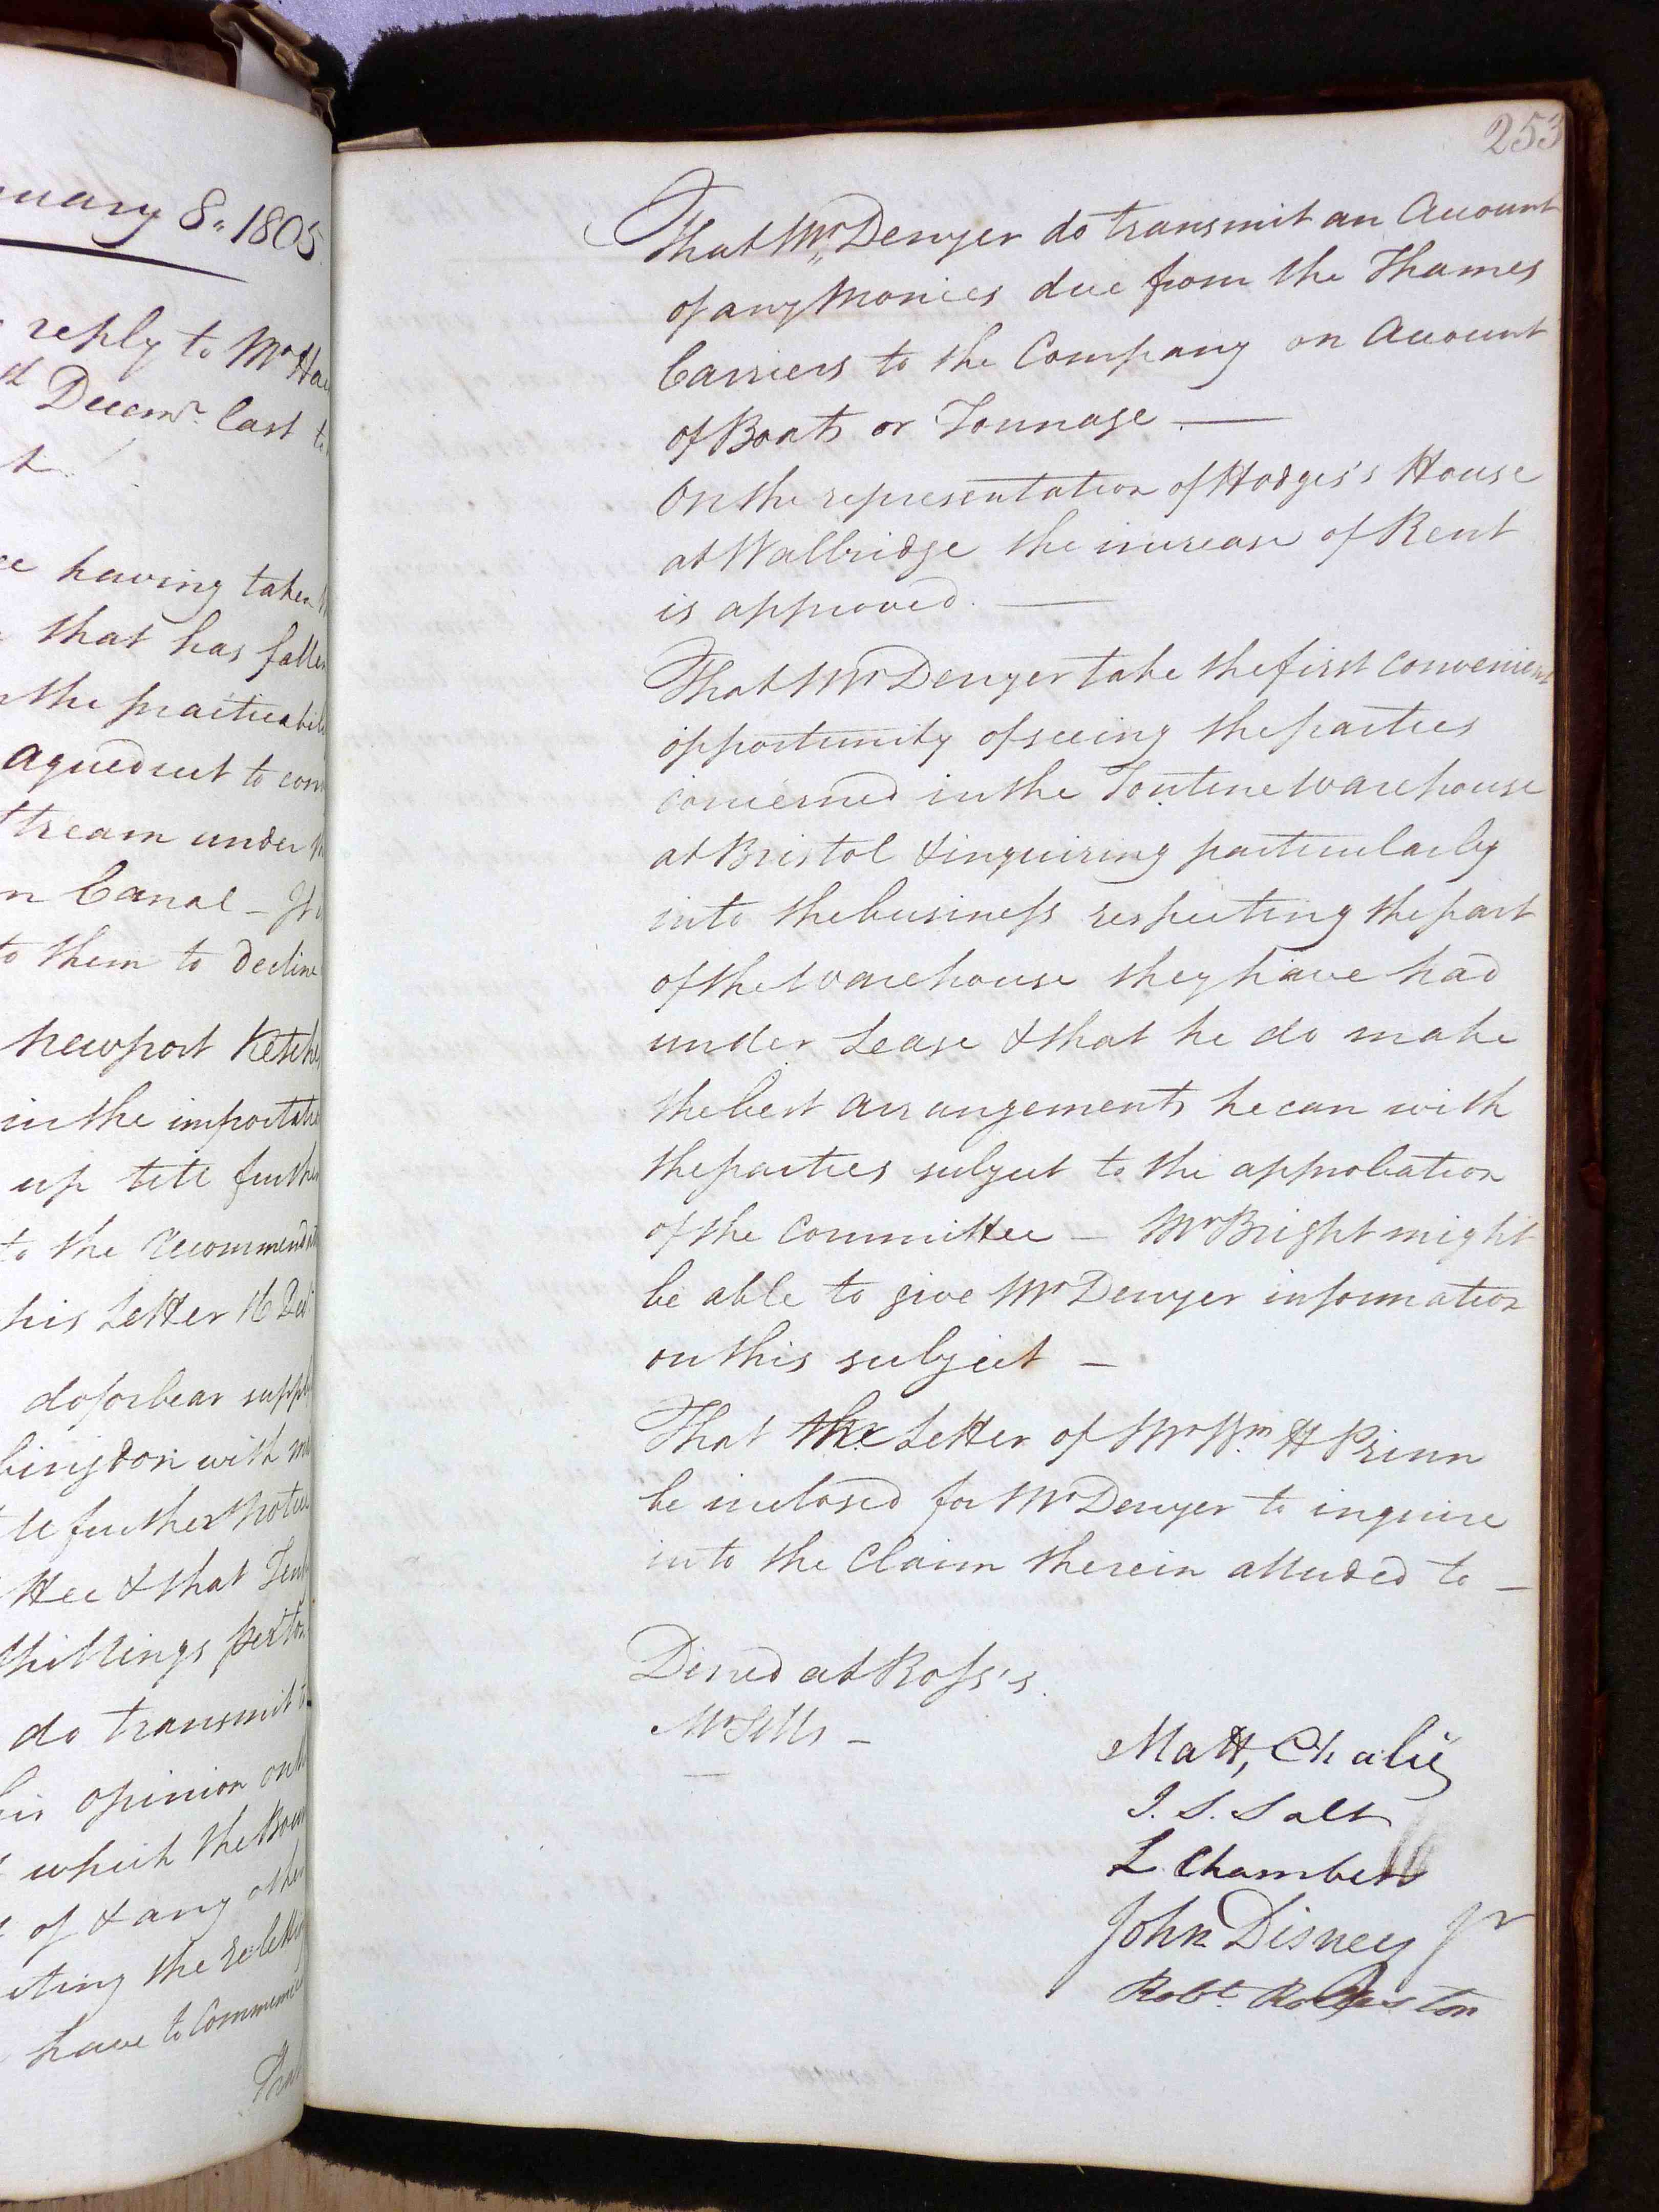 nuary 8. 1805
reply to Mr Ha
Decemr. last t
t
having taken
that has falle
the practicabil
aqueduct to con
tream under
n Canal - It
to them to decline
newport Ketche
in the importati
up till furthe
to the recommend
his Letter 16 Dec
do forbear suppl
bingdon with
ll further notic
ttee & that Ten
shillings per ton
do transmit t
his opinion on
which the Boa
of & any othe
cting the
have to Communic
That
253
That Mr. Denyer do transmit an Account
of any Monies due from the Thames
Carriers to the Company on Account
of Boats or Tonnage —
On the representation of Hodges's House
at Wallbridge the increase of Rent
is approved. —
That Mr Denyer take the first convenient
opportunity of seeing the parties
concerned in the Tontine Warehouse
at Bristol & inquiring particularly
into the business respecting the part
of the Warehouse they have had
under Lease & that he do make
the best arrangements he can with
the parties subject to the approbation
of the Committee — Mr Bright might
be able to give Mr Denyer information
on this subject —
That the Letter of Mr Wm. H Prinn
be inclosed for Mr Denyer to inquire
into the Claim therein alluded to —
Dined at Ross's.
Mr Sills —
Matt, Chalié
J. S. Salt
L Chambers
John Disney Jr
Robt. Rolleston